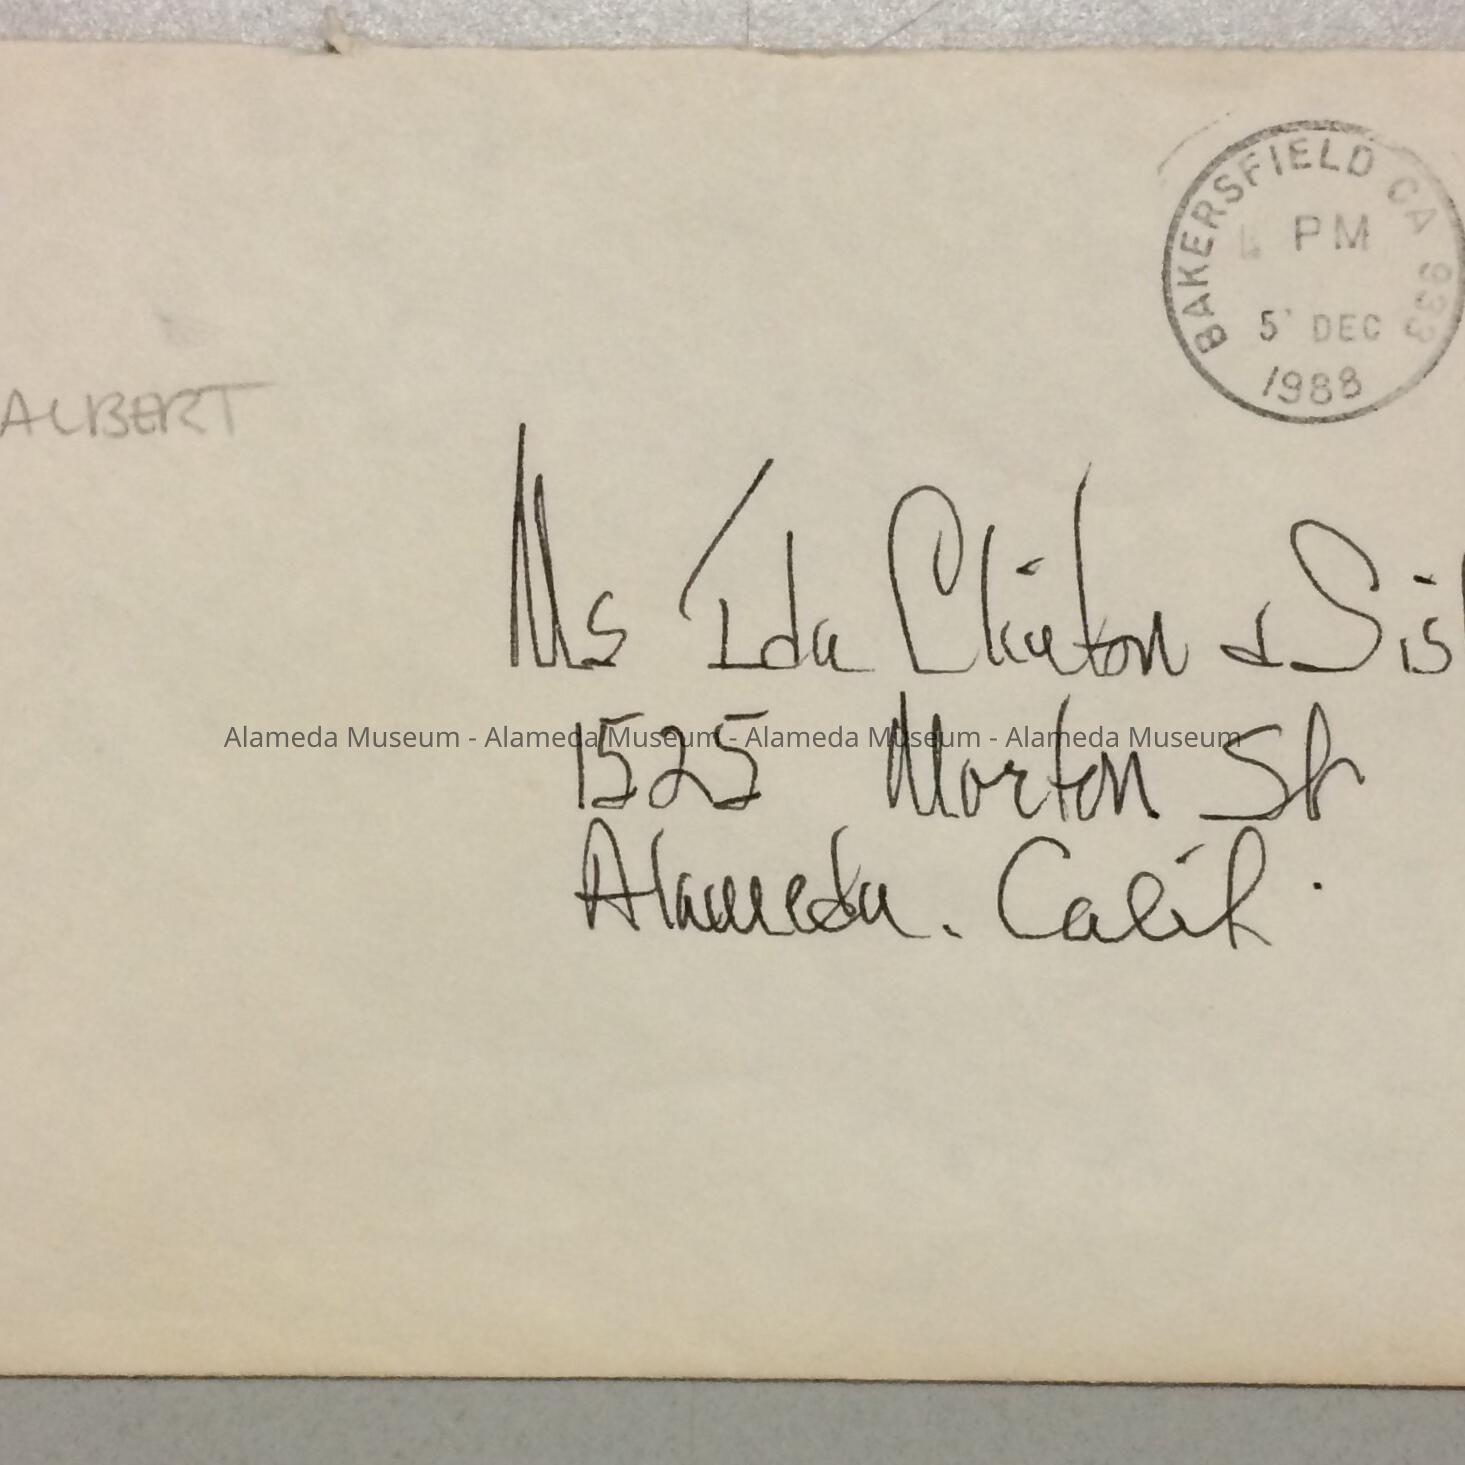 BAKERSFIELD CA 933
PM
5 DEC
1988
ALBERT
Ms Ida Clinton & Sis
1525 Morton St
Alameda Museum - Alameda Museum - Alameda Museum - Alameda Museum
Alameda. Calif.